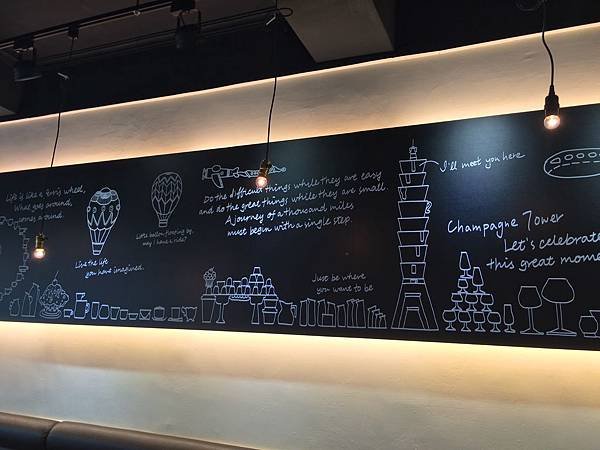 Life is like a ferris wheel,
What goes around,
comes around.
Live the life
you have imagined.
Little balloon floating by,
may I have a ride?
Do the difficult things while they are easy
and do the great things while they are small.
A journey of a thousand miles
must begin with a single step.
Just be where
you want to be
I'll meet you here
Champagne Tower
Let's celebrate
this great mome